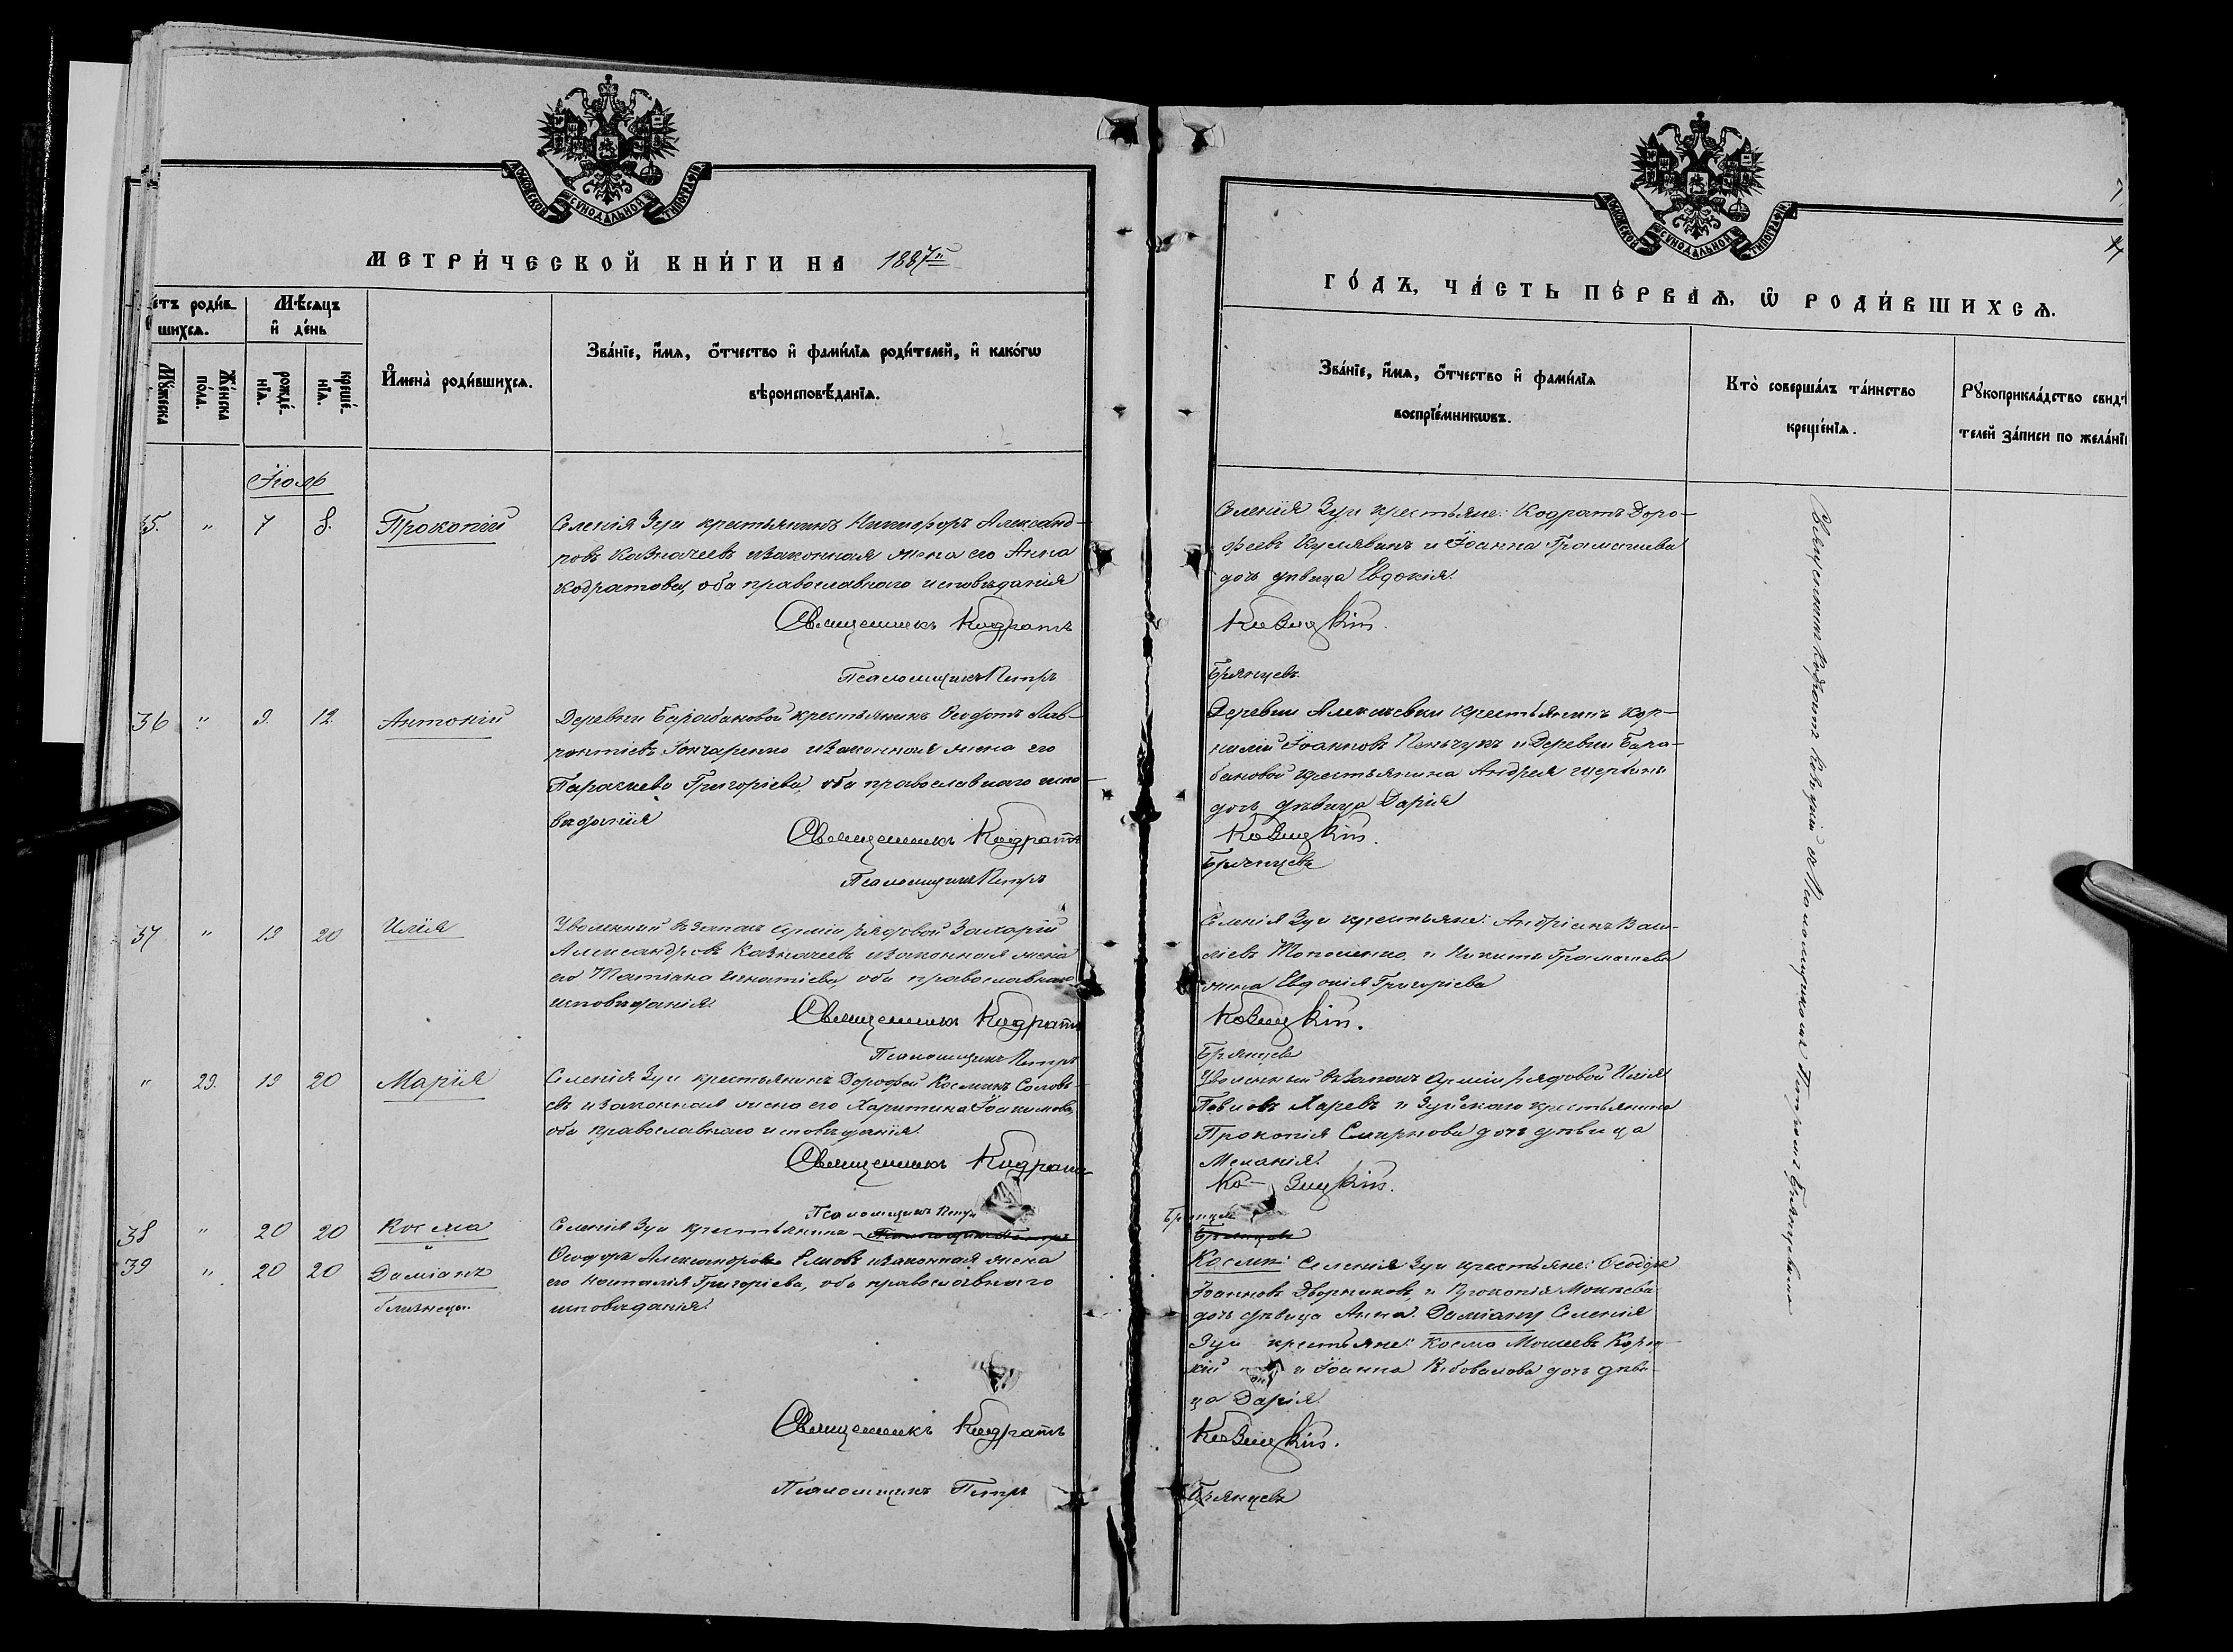 МОСКОВСКОЙ СѴНОДАЛЬНОЙ ТИПОГРАФІИ
МЕТРИ́ЧЕСКОЙ КНИ́ГИ НА 1887й
е́тъ роди́в-
шихсѧ.
Мѣ́сѧцъ
и҆ де́нь
Мꙋ́жеска
Же́нска
по́ла.
рожде́-
нїѧ.
креще́-
нїѧ.
И҆мена̀ роди́вшихсѧ.
Зва́нїе, и҆́мѧ, ѻ҆́тчество и҆ фами́лїѧ роди́телей, и҆ како́гѡ
вѣроисповѣ́данїѧ.
Іюль
35. " 7 8. Прокопій
Селенія Зуи крестьянинъ Никифоръ Александ-
ровъ Казначеевъ изаконная жена его Анна
Кодратова, оба православнаго исповѣданія
Священникъ Кодратъ
Псаломщикъ Петръ
36 " 9. 12 Антоній
Деревни Барабановой крестьянинъ Ѳеодотъ Лав-
рентіевъ Гончаренко изаконная жена его
Параскева Григоріева, оба православнаго испо-
вѣданія
Священникъ Кодратъ
Псаломщикъ Петръ
37 " 19 20 Илія
Уволенный въ запасъ арміи рядовой Захарій
Александровъ Казначеевъ изаконная жена
его Татіана Игнатіева, оба православнаго
исповѣданія.
Священникъ Кодратъ
Псаломщикъ Петръ
" 29. 19 20 Марія
Селенія Зуи крестьянинъ Дорофей Косминъ Соловь-
евъ изаконная жена его Харитина Іоакимова,
оба православнаго исповѣданія.
Священникъ Кодратъ
Псаломщикъ Петръ
38 " 20 20 Косма
39 " 20 20 Даміанъ
близнецы.
Селенія Зуи крестьянинъ Псаломщикъ Петръ
Ѳеодоръ Александровъ изаконная жена
его Наталія Григоріева, оба православнаго
исповѣданія.
Священникъ Кодратъ
Псаломщикъ Петръ
МОСКОВСКОЙ СѴНОДАЛЬНОЙ ТИПОГРАФІИ
ГО́ДЪ, ЧА́СТЬ ПЕ́РВАѦ, Ѡ҆ РОДИ́ВШИХСѦ.
Зва́нїе, и҆́мѧ, ѻ҆́тчество и҆ фами́лїѧ
воспрїе́мникѡвъ.
Кто̀ соверша́лъ та́инство
креще́нїѧ.
Рꙋкоприкла́дство свид
телей за́писи по жела́нї
Селенія Зуи крестьяне: Кодратъ Доро-
феевъ и Іоанна Грамашева
дочь дѣвица Евдокія.
Ковицкій.
Брянцевъ.
Деревни Алексѣевки крестьянинъ Кор-
нилій Іоанновъ и Деревни Бара-
бановой крестьянина Андрея Щербины
дочь дѣвица Дарія
Ковицкій.
Брянцевъ
Селенія Зуи крестьяне: Андріанъ Васи-
ліевъ и Никиты Грамашева
жена Евдокія Григоріева
Ковицкій.
Брянцевъ
Уволенный въ запасъ арміи рядовой Илія
Павловъ Харевъ и Зуйскаго крестьянина
Прокопія Смирнова дочь дѣвица
Меланія.
Ковицкій.
Брянцевъ
Брянцевъ
Космы: Селенія Зуи крестьяне: Ѳеодоръ
Іоанновъ Дворниковъ, и Прокопія
дочь дѣвица Анна. Даміану Селенія
Зуи крестьяне: Косма
и Іоанна дочь дѣви-
ца Дарія.
Ковицкій.
Брянцевъ
Священникъ Кодратъ Ковицкій съ Псаломщикомъ Петромъ Брянцевымъ